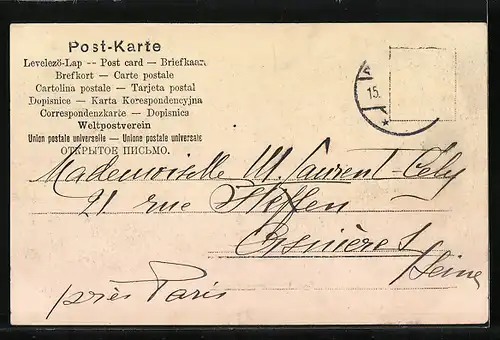 Post-Karte
Levelező-Lap -- Post card — Briefkaart
Brefkort — Carte postale
Cartolina postale — Tarjeta postal
Dopisnice — Karta Korespondencyjna
Correspondenzkarte — Dopisnica
Weltpostverein
Union postale universelle — Unione postale universale
ОТКРЫТОЕ ПИСЬМО.
15.
Mademoiselle M. Laurent-Cely
21 rue Steffen
Asnières
Seine
près Paris